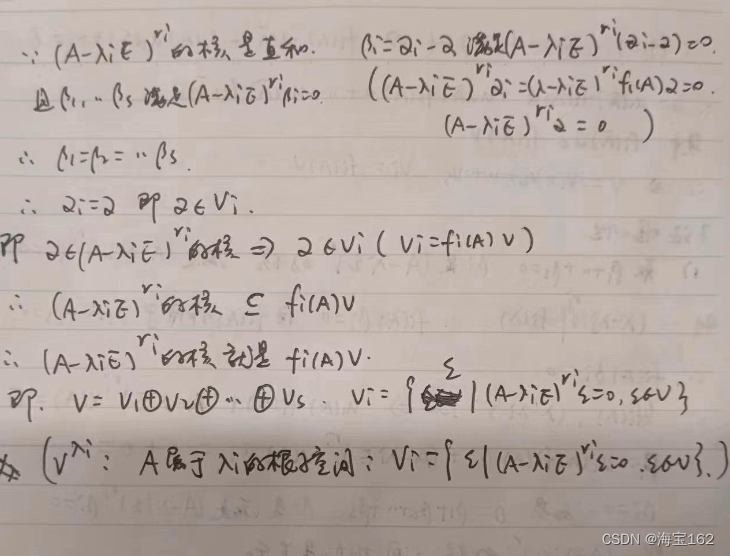 ∵ (A-λiE)^ri的核是直和. βi=αi-α 满足(A-λiE)^ri(αi-α)=0.
且β1,…βs满足(A-λiE)^ri βi=0. ((A-λiE)^ri αi=(λ-λiE)^ri fi(A)α=0.
(A-λiE)^ri α=0 )
∴ β1=β2=…βs.
∴ αi=α 即 α∈Vi.
即 α∈(A-λiE)^ri的核 ⇒ α∈Vi ( Vi=fi(A)V )
∴ (A-λiE)^ri的核 ⊆ fi(A)V
∴ (A-λiE)^ri的核就是 fi(A)V.
即. V=V1⊕V2⊕…⊕Vs. Vi={ ξ | (A-λiE)^ri ξ=0, ξ∈V}
(V^λi: A属于λi的根子空间: Vi={ ξ | (A-λiE)^ri ξ=0. ξ∈V}.)
CSDN @海宝162